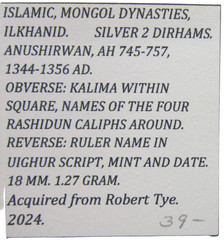 ISLAMIC, MONGOL DYNASTIES,
ILKHAND. SILVER 2 DIRHAMS.
ANUSHIRWAN, AH 745-757,
1344-1356 AD.
OBVERSE: KALIMA WITHIN
SQUARE, NAMES OF THE FOUR
RASHIDUN CALIPHS AROUND.
REVERSE: RULER NAME IN
UIGHUR SCRIPT, MINT AND DATE.
18 MM. 1.27 GRAM.
Acquired from Robert Tye.
2024.
39-